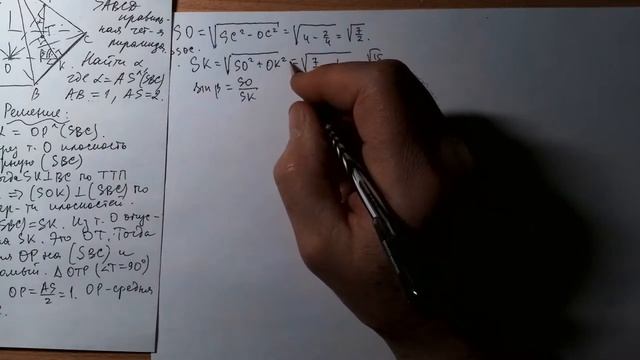 >ABCD
правиль-
ная чет-я
пирамида.
Найти α
где α=AS^(SBC)
AB=1, AS=2.
O
B
Решение:
= OP^(SBC).
т. O плоскость
(SBC)
SK⊥BC по ТТП
⇒ (SOK)⊥(SBC) по
плоскостей.
SBC)=SK. Из т. O опус-
на SK. Это OT. Тогда
OP на (SBC) и
. ΔOTP (∠T=90°)
OP = AS/2 = 1. OP-средняя
SO = √(SC²-OC²) = √(4-2/4) = √(7/2).
SK = √(SO²+OK²) = √(7
√15
sin β = SO/SK